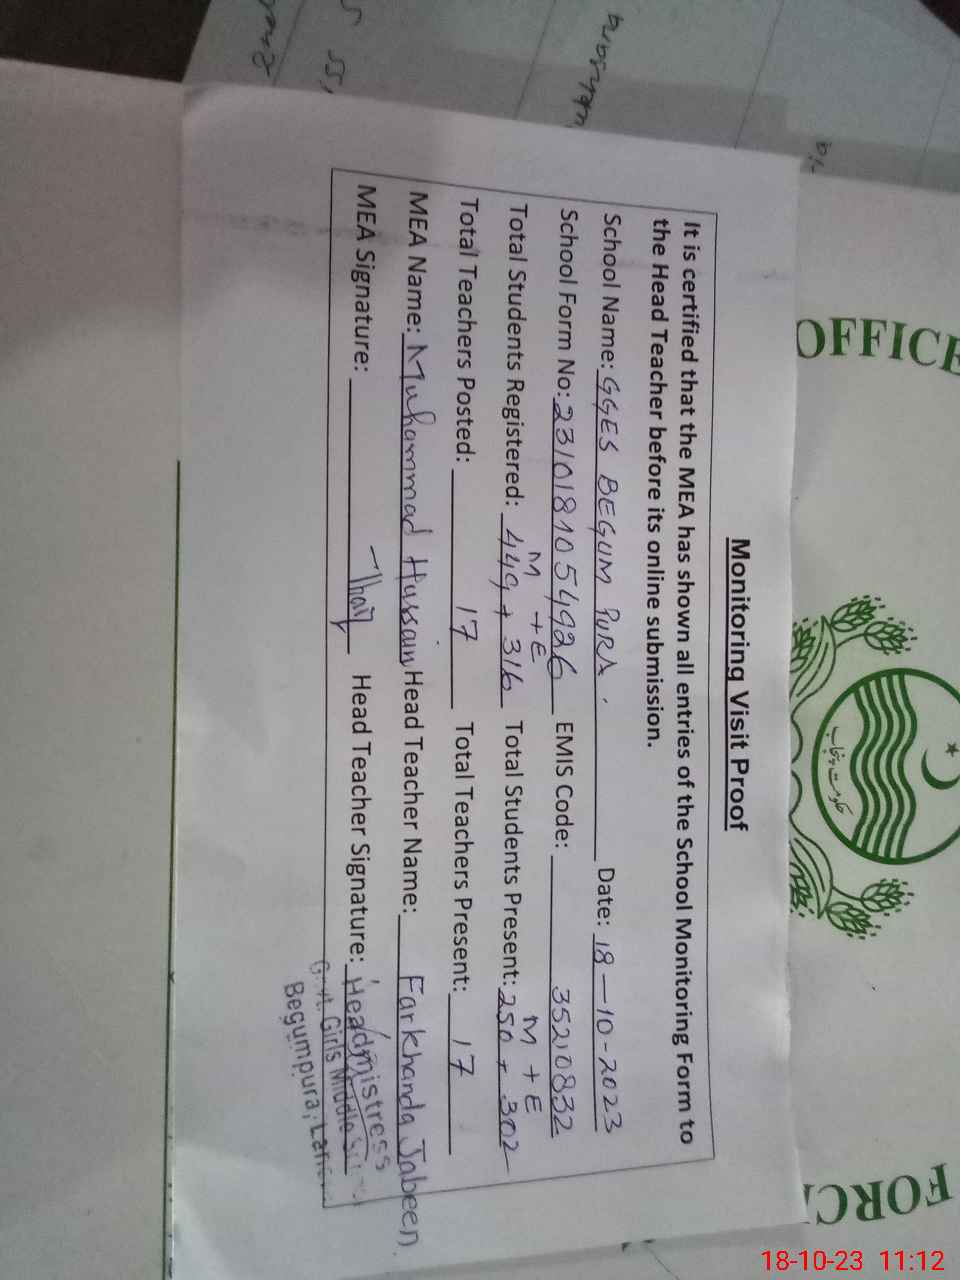 OFFICE
FORC
Monitoring Visit Proof
It is certified that the MEA has shown all entries of the School Monitoring Form to
the Head Teacher before its online submission.
School Name: GGES BEGUM PURA. Date: 18-10-2023
School Form No: 2310181054926 EMIS Code: 35210832
M + E M + E
Total Students Registered: 449 + 316 Total Students Present: 250 + 302
Total Teachers Posted: 17 Total Teachers Present: 17
MEA Name: Muhammad Hussain Head Teacher Name: Farkhanda Jabeen.
MEA Signature: Head Teacher Signature:
Headmistress
Govt. Girls Middle
Begumpura,
حکومت پنجاب
18-10-23 11:12